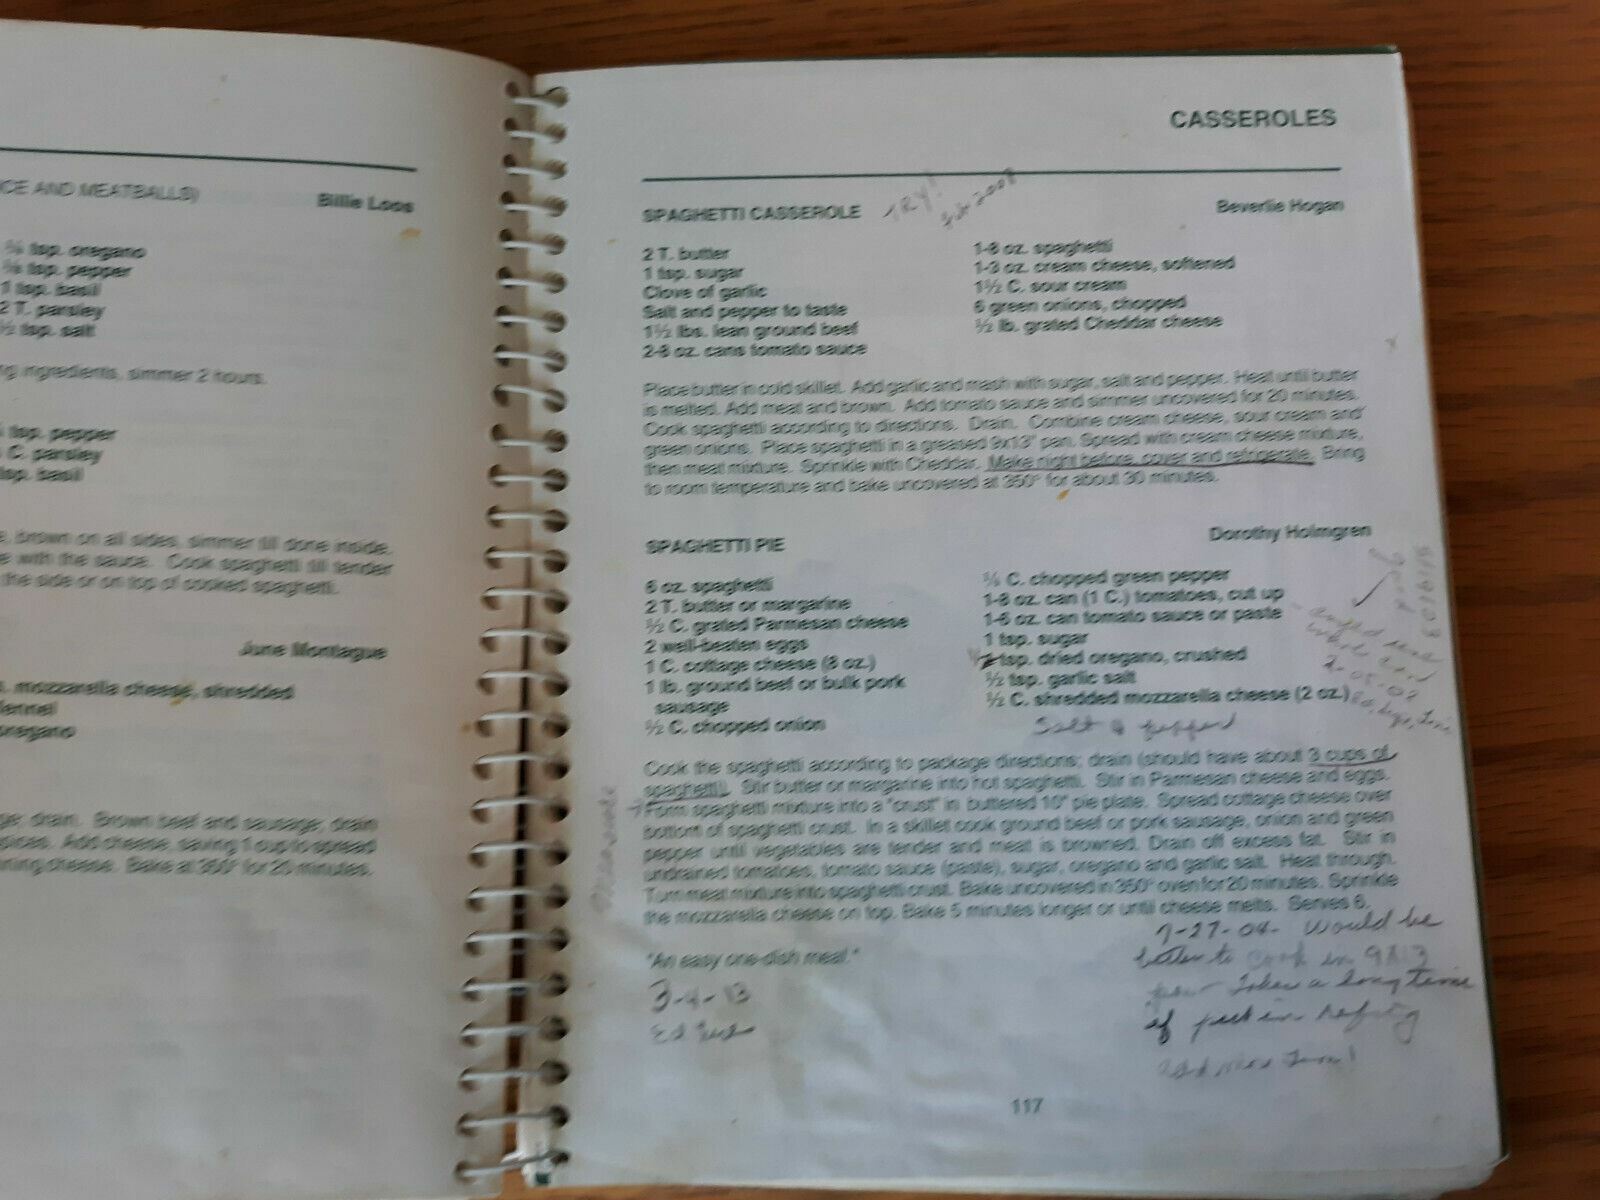 CE AND MEATBALLS)
Billie Loos
tsp. oregano
tsp. pepper
1 tsp. basil
2 T. parsley
½ tsp. salt
ingredients, simmer 2 hours.
tsp. pepper
C. parsley
tsp. basil
brown on all sides, simmer till done inside.
with the sauce. Cook spaghetti till tender
the side or on top of cooked spaghetti.
June Montague
mozzarella cheese, shredded
fennel
oregano
drain. Brown beef and sausage; drain
Add cheese, saving 1 cup to spread
cheese. Bake at 350° for 20 minutes.
CASSEROLES
SPAGHETTI CASSEROLE
TRY!
2008
Beverlie Hogan
2 T. butter
1 tsp. sugar
Clove of garlic
Salt and pepper to taste
1½ lbs. lean ground beef
2-8 oz. cans tomato sauce
1-8 oz. spaghetti
1-3 oz. cream cheese, softened
1½ C. sour cream
6 green onions, chopped
½ lb. grated Cheddar cheese
Place butter in cold skillet. Add garlic and mash with sugar, salt and pepper. Heat until butter
is melted. Add meat and brown. Add tomato sauce and simmer uncovered for 20 minutes.
Cook spaghetti according to directions. Drain. Combine cream cheese, sour cream and
green onions. Place spaghetti in a greased 9x13" pan. Spread with cream cheese mixture,
then meat mixture. Sprinkle with Cheddar. Make night before, cover and refrigerate. Bring
to room temperature and bake uncovered at 350° for about 30 minutes.
SPAGHETTI PIE
Dorothy Holmgren
6 oz. spaghetti
2 T. butter or margarine
½ C. grated Parmesan cheese
2 well-beaten eggs
1 C. cottage cheese (8 oz.)
1 lb. ground beef or bulk pork
sausage
½ C. chopped onion
C. chopped green pepper
1-8 oz. can (1 C.) tomatoes, cut up
1-6 oz. can tomato sauce or paste
1 tsp. sugar
tsp. dried oregano, crushed
½ tsp. garlic salt
½ C. shredded mozzarella cheese (2 oz.)
Salt &
good
Cook the spaghetti according to package directions; drain (should have about 3 cups of
spaghetti). Stir butter or margarine into hot spaghetti. Stir in Parmesan cheese and eggs.
Form spaghetti mixture into a "crust" in buttered 10" pie plate. Spread cottage cheese over
bottom of spaghetti crust. In a skillet cook ground beef or pork sausage, onion and green
pepper until vegetables are tender and meat is browned. Drain off excess fat. Stir in
undrained tomatoes, tomato sauce (paste), sugar, oregano and garlic salt. Heat through.
Turn meat mixture into spaghetti crust. Bake uncovered in 350° oven for 20 minutes. Sprinkle
the mozzarella cheese on top. Bake 5 minutes longer or until cheese melts. Serves 6.
"An easy one-dish meal."
3-4-13
7-27-04- Would be
better to cook in 9X13
pan - Takes a long time
if put in refrig
117